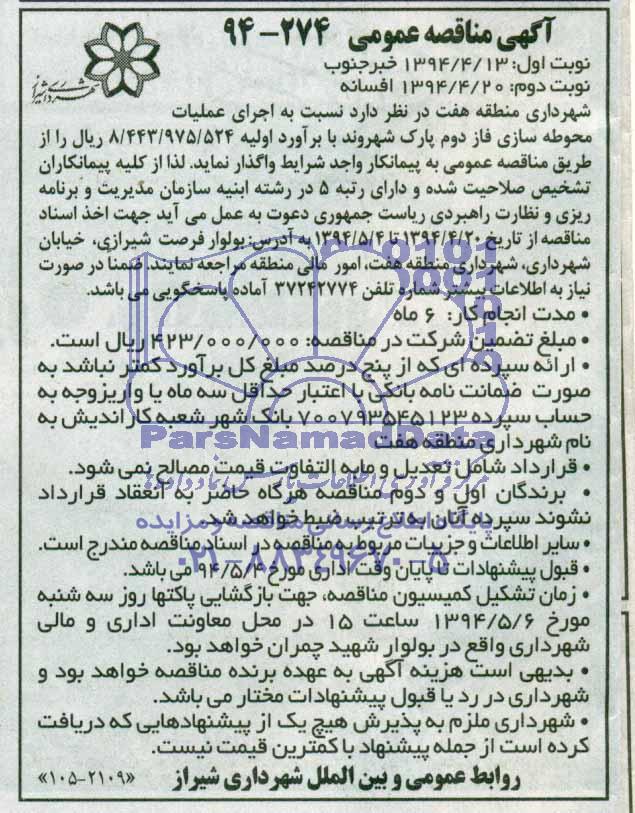 آگهی مناقصه عمومی ۲۷۴-۹۴
نوبت اول: ۱۳۹۴/۴/۱۳ خبرجنوب
نوبت دوم: ۱۳۹۴/۴/۲۰ افسانه
شهرداری شیراز
شهرداری منطقه هفت در نظر دارد نسبت به اجرای عملیات
محوطه سازی فاز دوم پارک شهروند با برآورد اولیه ۸/۴۴۳/۹۷۵/۵۲۴ ریال را از
طریق مناقصه عمومی به پیمانکار واجد شرایط واگذار نماید. لذا از کلیه پیمانکاران
تشخیص صلاحیت شده و دارای رتبه ۵ در رشته ابنیه سازمان مدیریت و برنامه
ریزی و نظارت راهبردی ریاست جمهوری دعوت به عمل می آید جهت اخذ اسناد
مناقصه از تاریخ ۱۳۹۴/۴/۲۰ تا ۱۳۹۴/۵/۴ به آدرس: بولوار فرصت شیرازی، خیابان
شهرداری، شهرداری منطقه هفت، امور مالی منطقه مراجعه نمایند. ضمنا در صورت
نیاز به اطلاعات بیشتر شماره تلفن ۳۷۲۴۲۷۷۴ آماده پاسخگویی می باشد.
• مدت انجام کار: ۶ ماه
• مبلغ تضمین شرکت در مناقصه: ۴۲۳/۰۰۰/۰۰۰ ریال است.
• ارائه سپرده ای که از پنج درصد مبلغ کل برآورد کمتر نباشد به
صورت ضمانت نامه بانکی با اعتبار حداقل سه ماه یا واریزوجه به
حساب سپرده ۷۰۰۷۹۳۵۴۵۱۲۳ بانک شهر شعبه کاراندیش به
نام شهرداری منطقه هفت
ParsNamadData
• قرارداد شامل تعدیل و مابه التفاوت قیمت مصالح نمی شود.
• برندگان اول و دوم مناقصه هرگاه حاضر به انعقاد قرارداد
نشوند سپرده آنان به ترتیب ضبط خواهد شد.
• سایر اطلاعات و جزییات مربوط به مناقصه در اسناد مناقصه مندرج است.
۰۲۱-۸۸۳۴۹۶۷۰-۵
• قبول پیشنهادات تا پایان وقت اداری مورخ ۹۴/۵/۴ می باشد.
• زمان تشکیل کمیسیون مناقصه، جهت بازگشایی پاکتها روز سه شنبه
مورخ ۱۳۹۴/۵/۶ ساعت ۱۵ در محل معاونت اداری و مالی
شهرداری واقع در بولوار شهید چمران خواهد بود.
• بدیهی است هزینه آگهی به عهده برنده مناقصه خواهد بود و
شهرداری در رد یا قبول پیشنهادات مختار می باشد.
• شهرداری ملزم به پذیرش هیچ یک از پیشنهادهایی که دریافت
کرده است از جمله پیشنهاد با کمترین قیمت نیست.
روابط عمومی و بین الملل شهرداری شیراز «۱۰۵-۲۱۰۹»